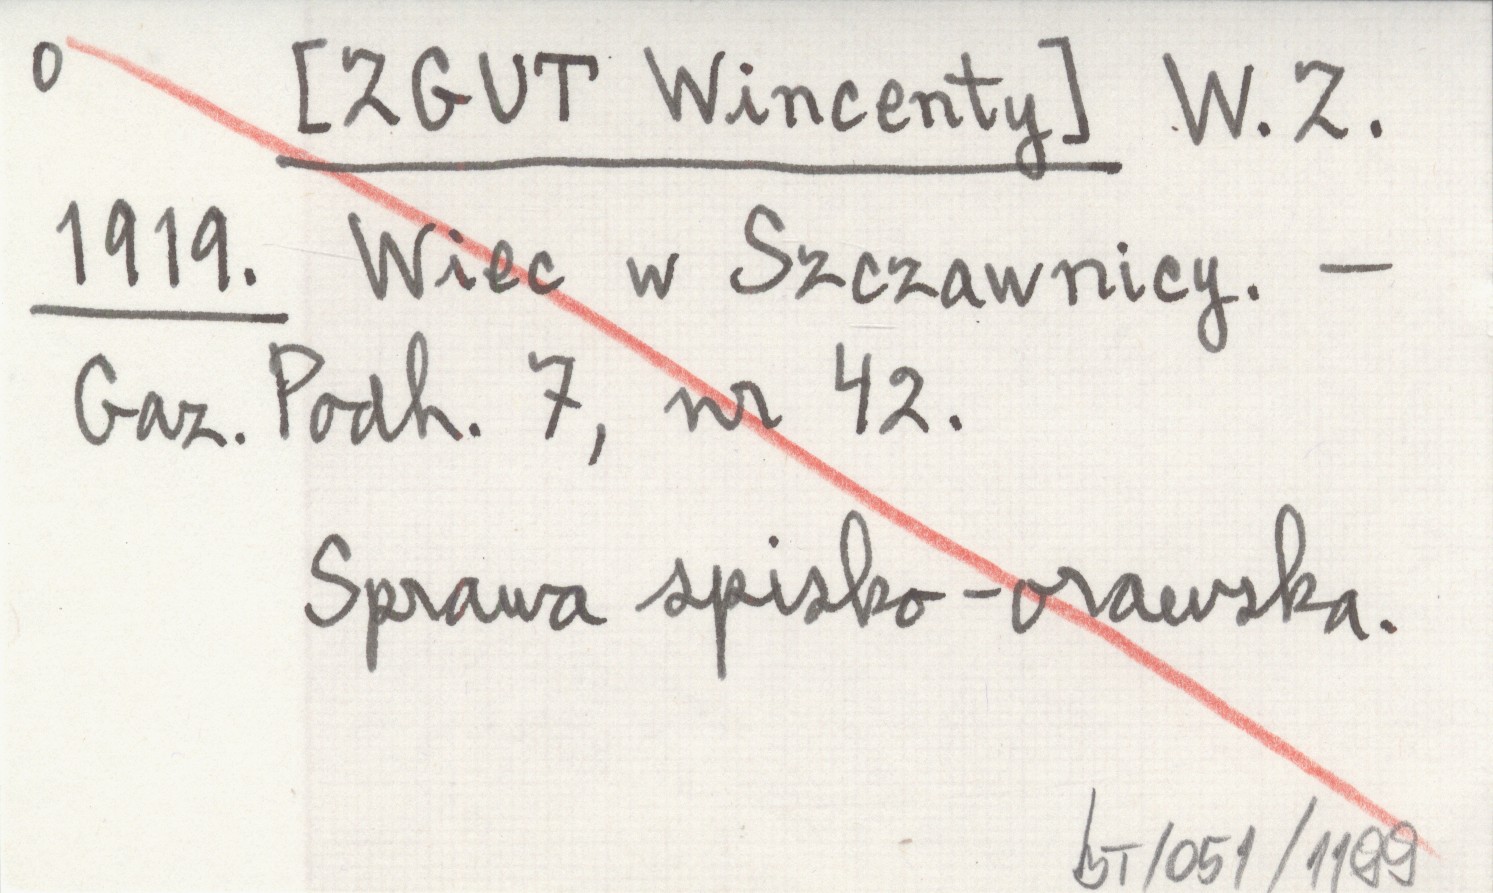 0 [ZGUT Wincenty] W. Z.
1919. Wiec w Szczawnicy. —
Gaz. Podh. 7, nr 42.
Sprawa spisko-orawska.
BT/051/1199